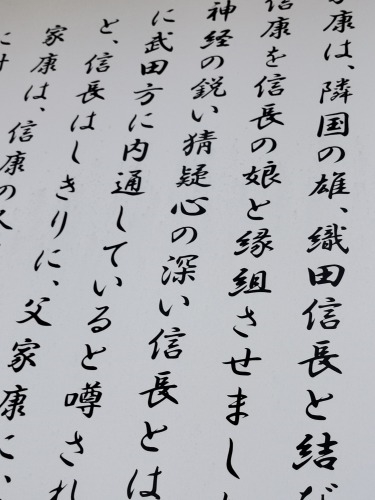 康は、隣国の雄、織田信長と結
信康を信長の娘と縁組させまし
神経の鋭い猜疑心の深い信長とは
に武田方に内通していると噂され
と、信長はしきりに、父家康に、
家康は、信康の